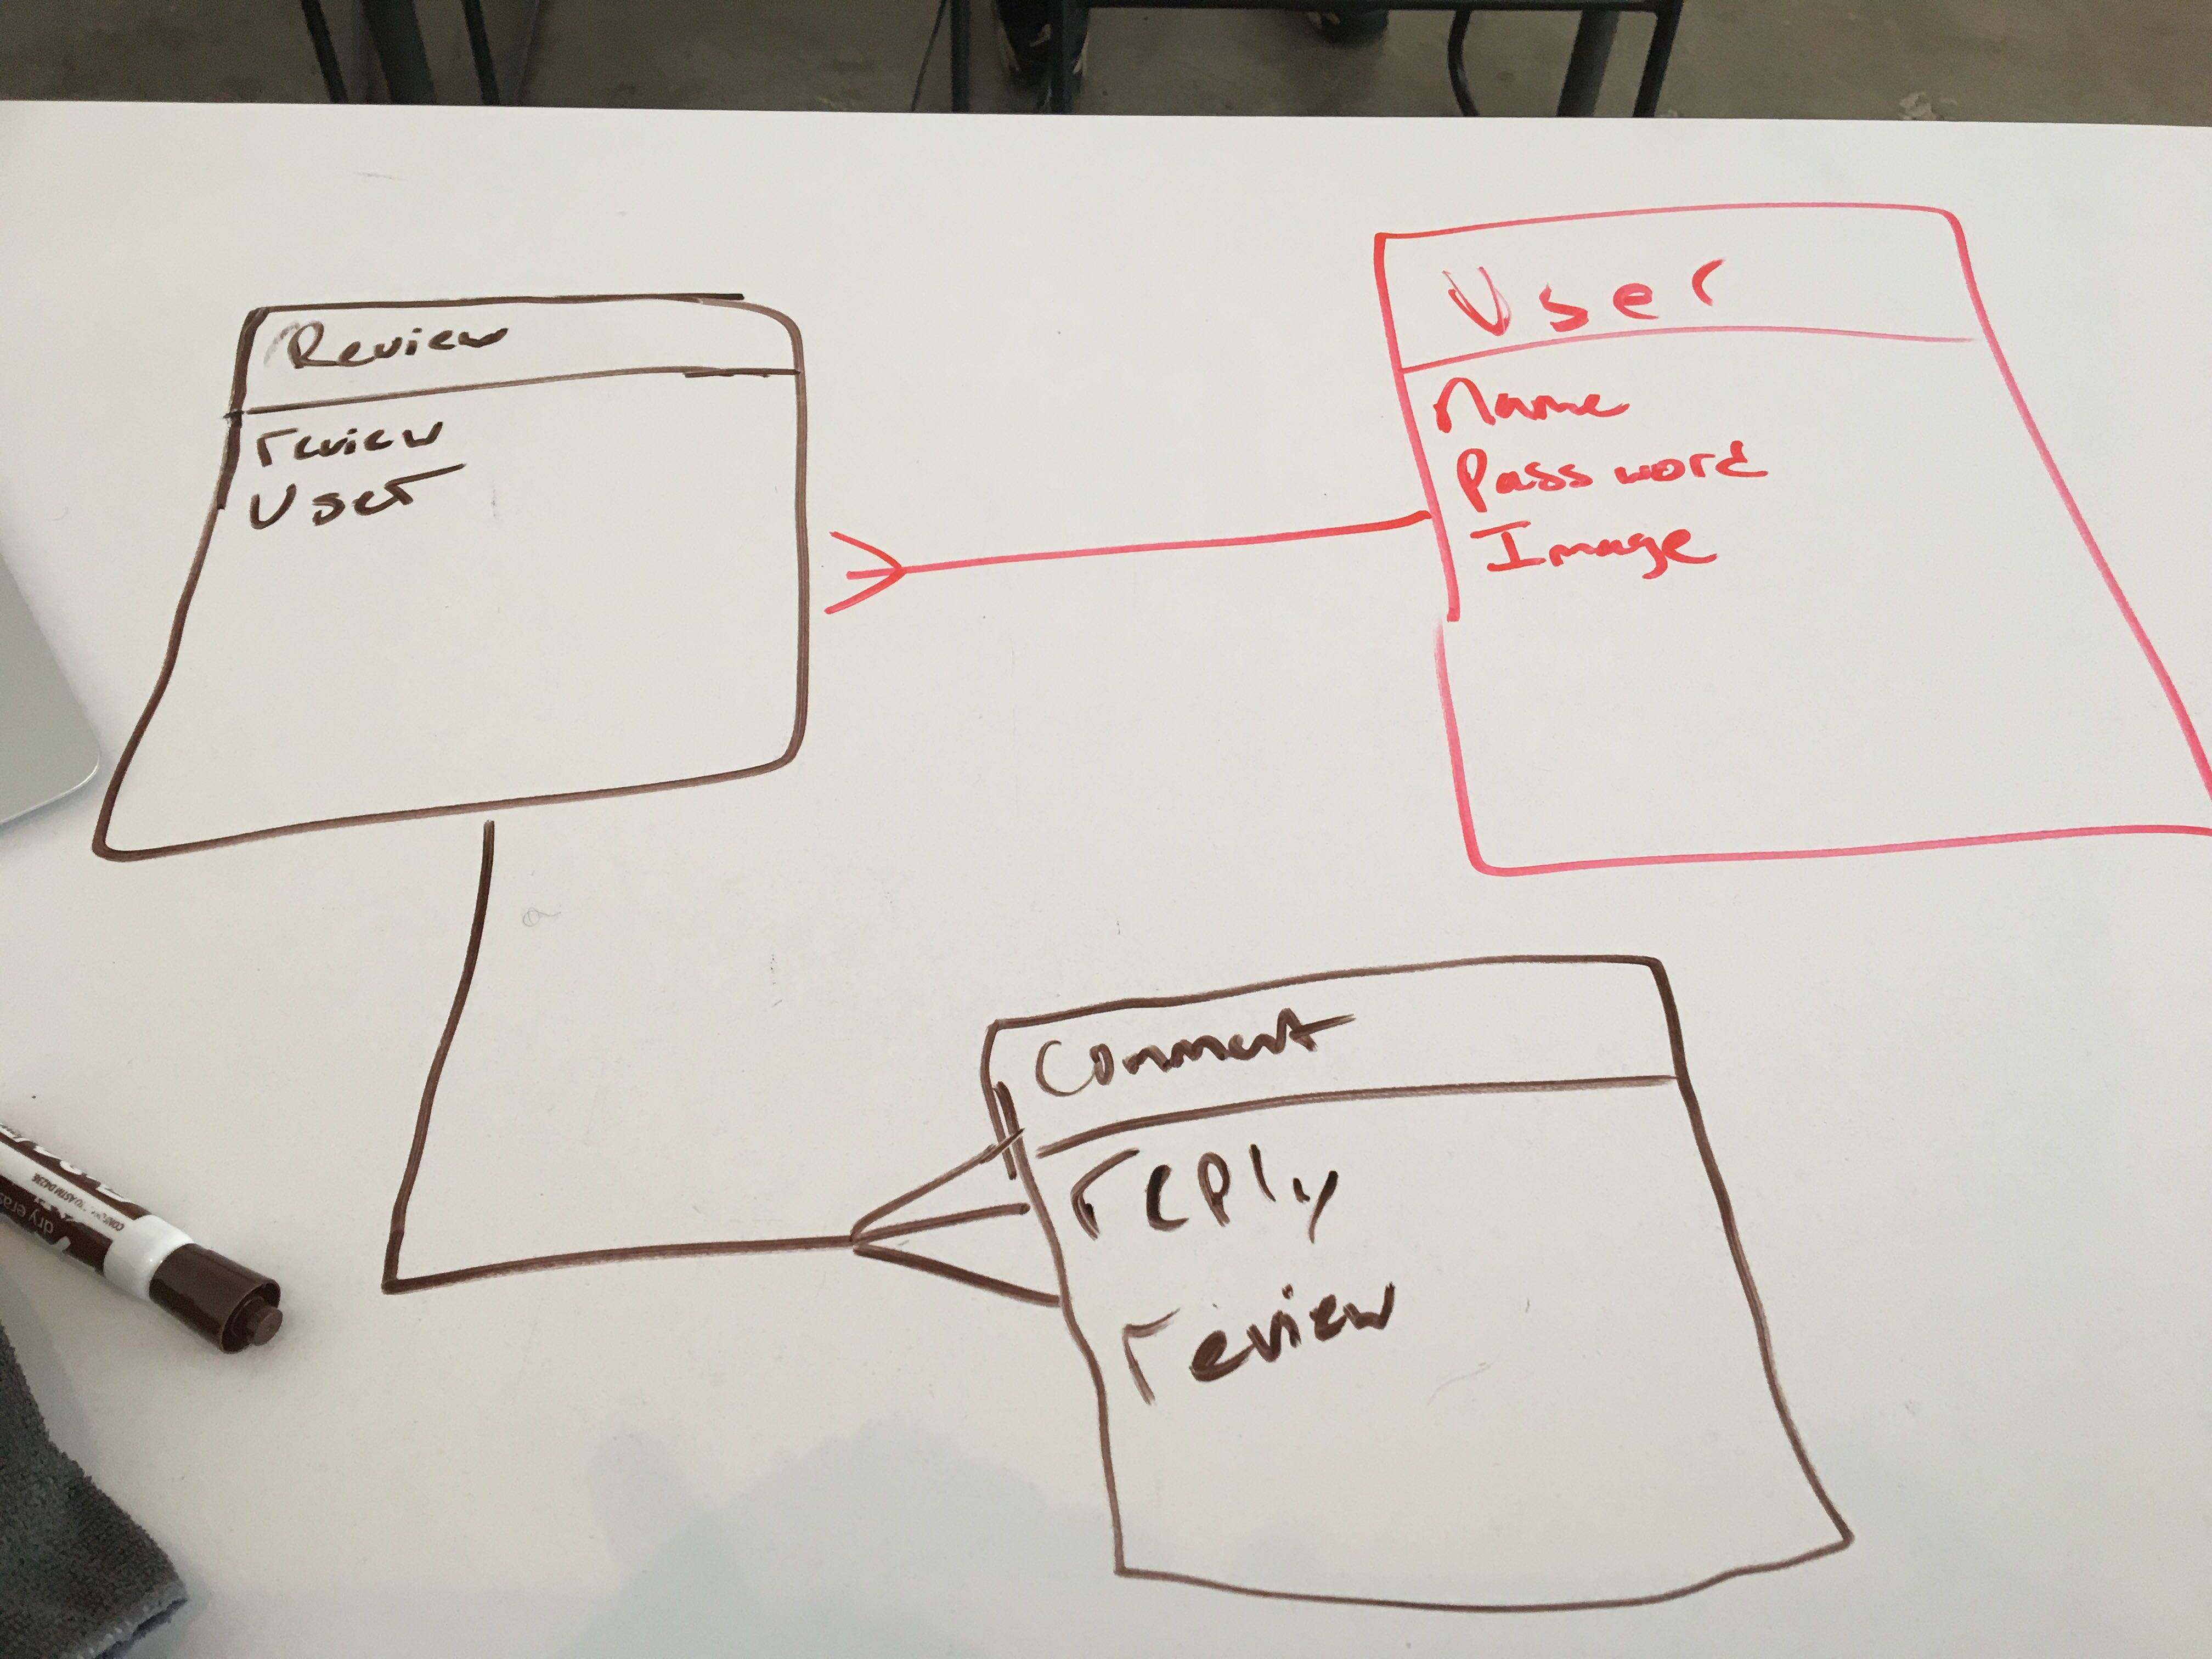 Review
review
User
User
Name
Password
Image
Comment
reply
review
dry eras